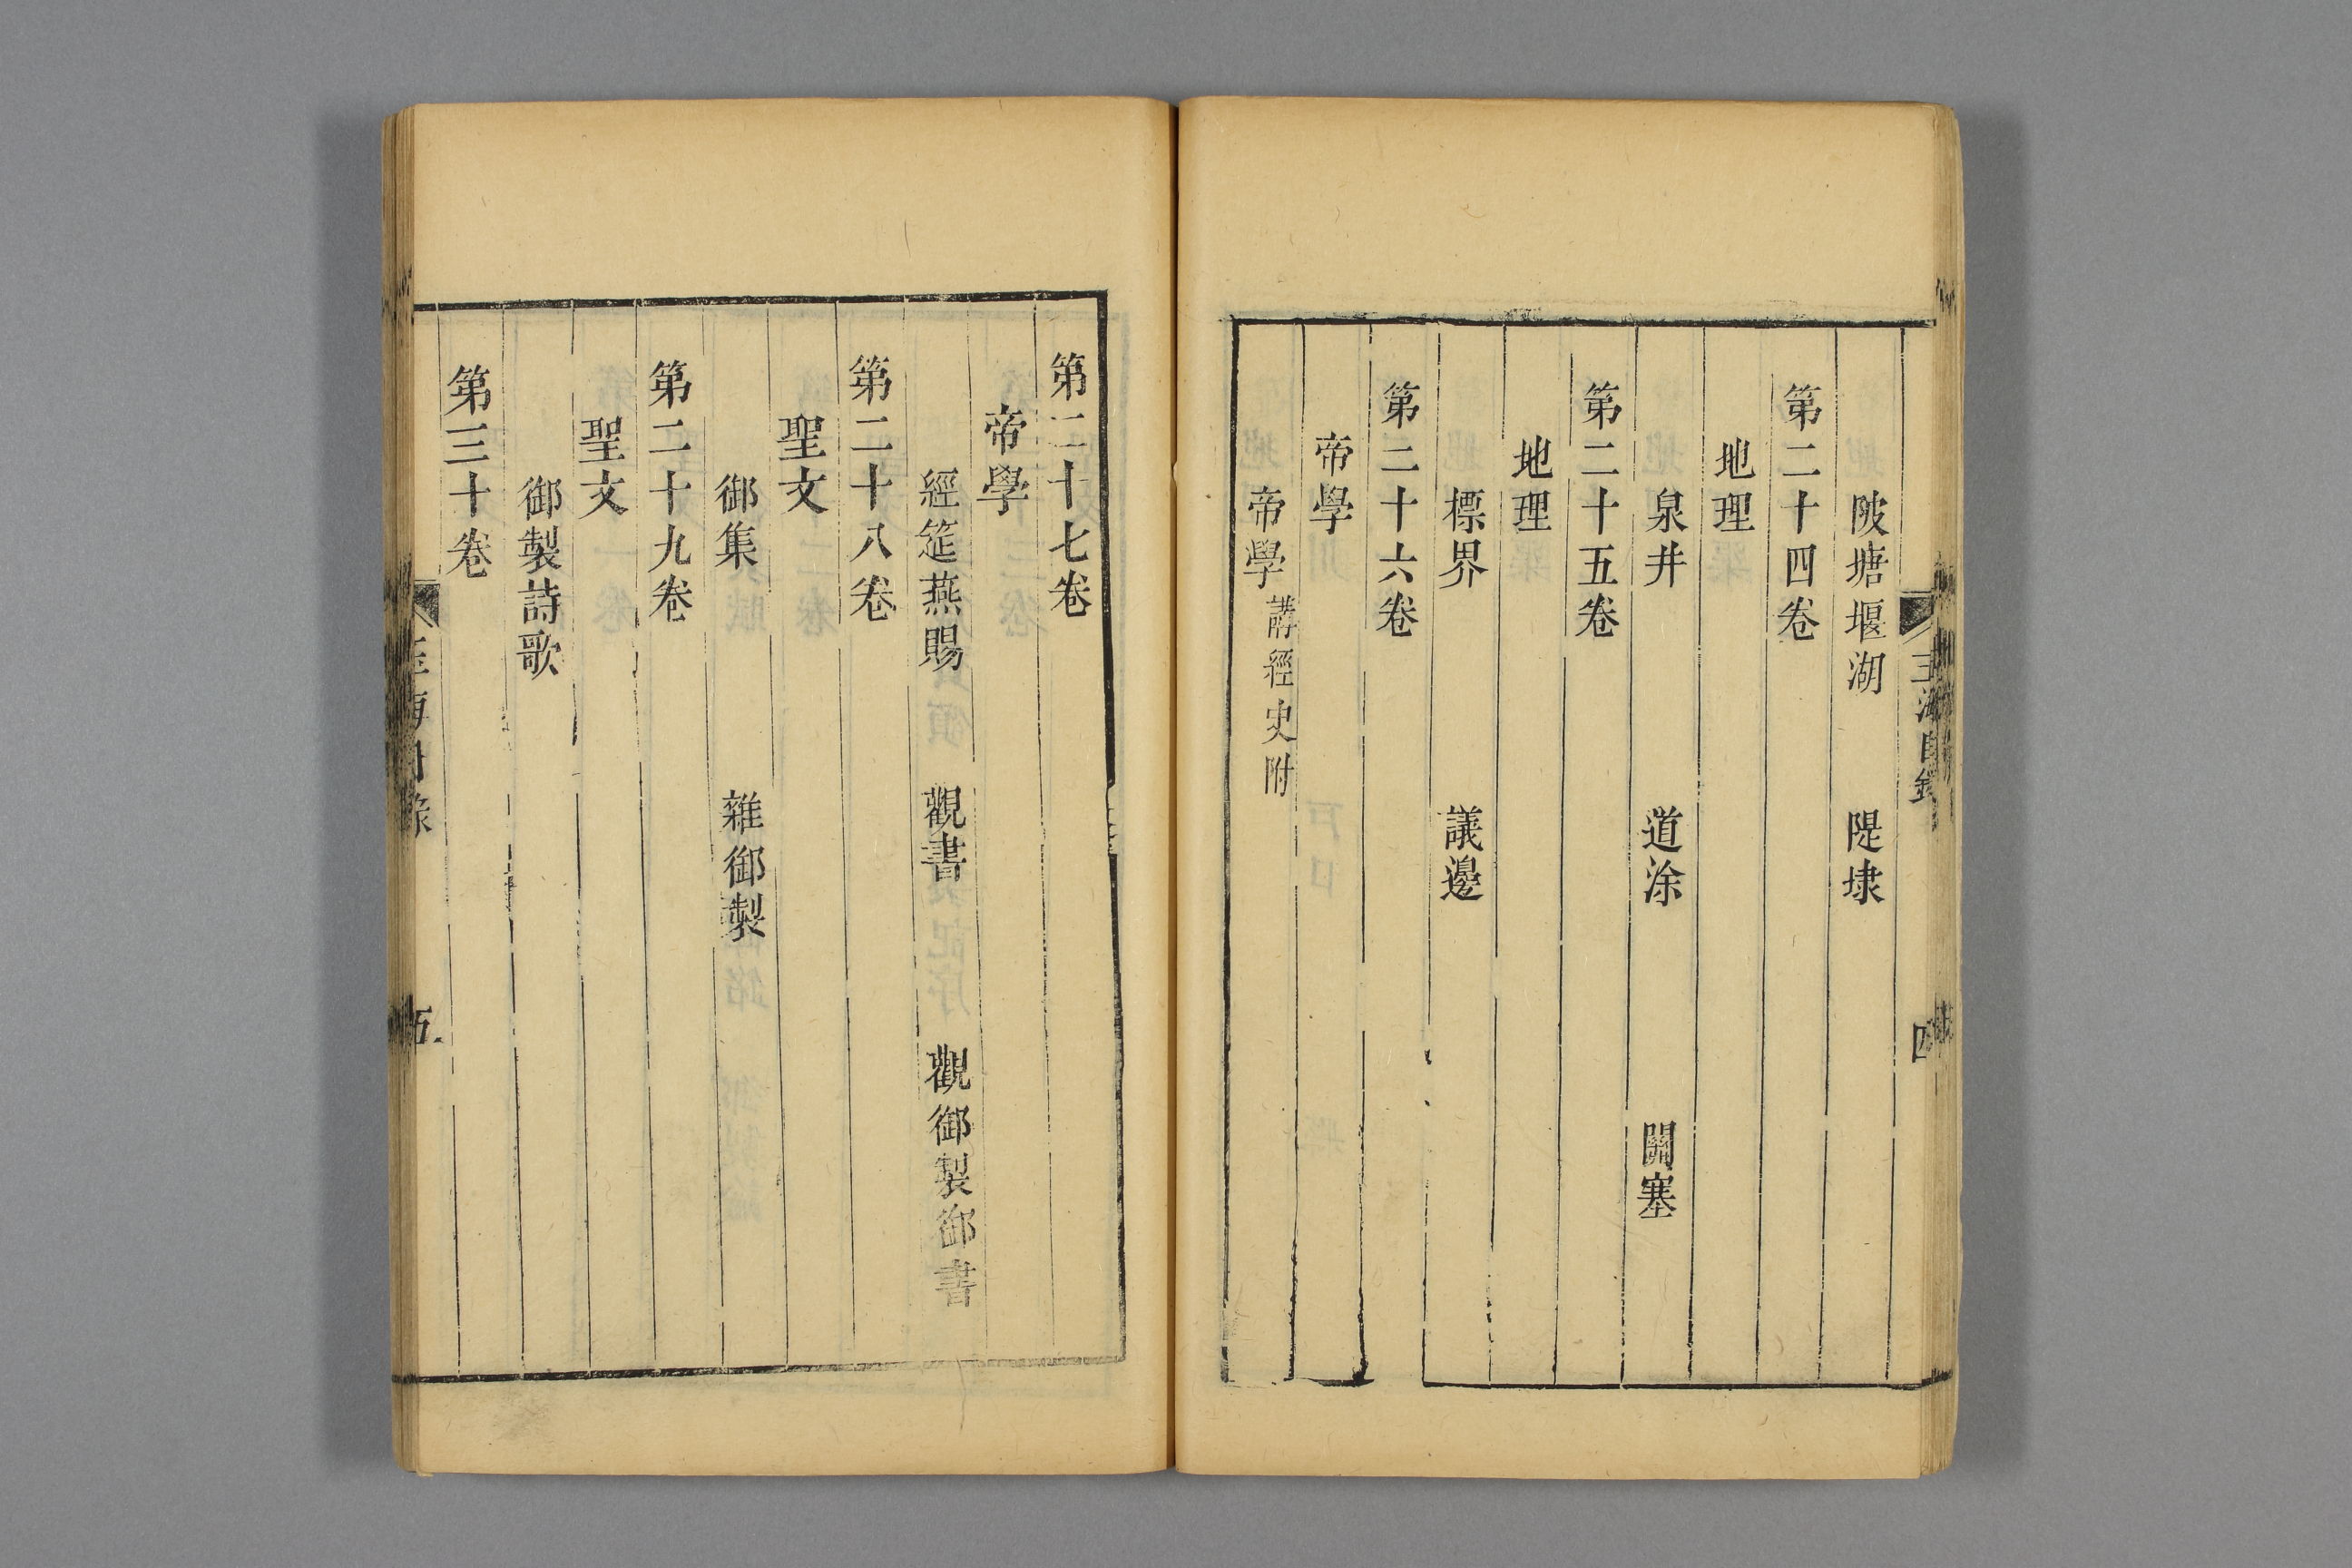 陂塘堰湖　隄埭
第二十四卷
地理
泉井　道涂　關塞
第二十五卷
地理
標界　議邊
第二十六卷
帝學
帝學講經史附
第二十七卷
帝學
經筵燕賜　觀書　觀御製御書
第二十八卷
聖文
御集　雜御製
第二十九卷
聖文
御製詩歌
第三十卷
玉海目錄
四
五